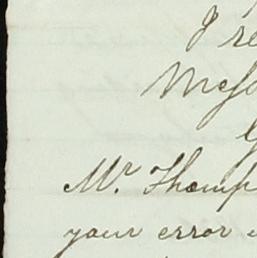 I re
Mess
G
Mr. Thomp
your error